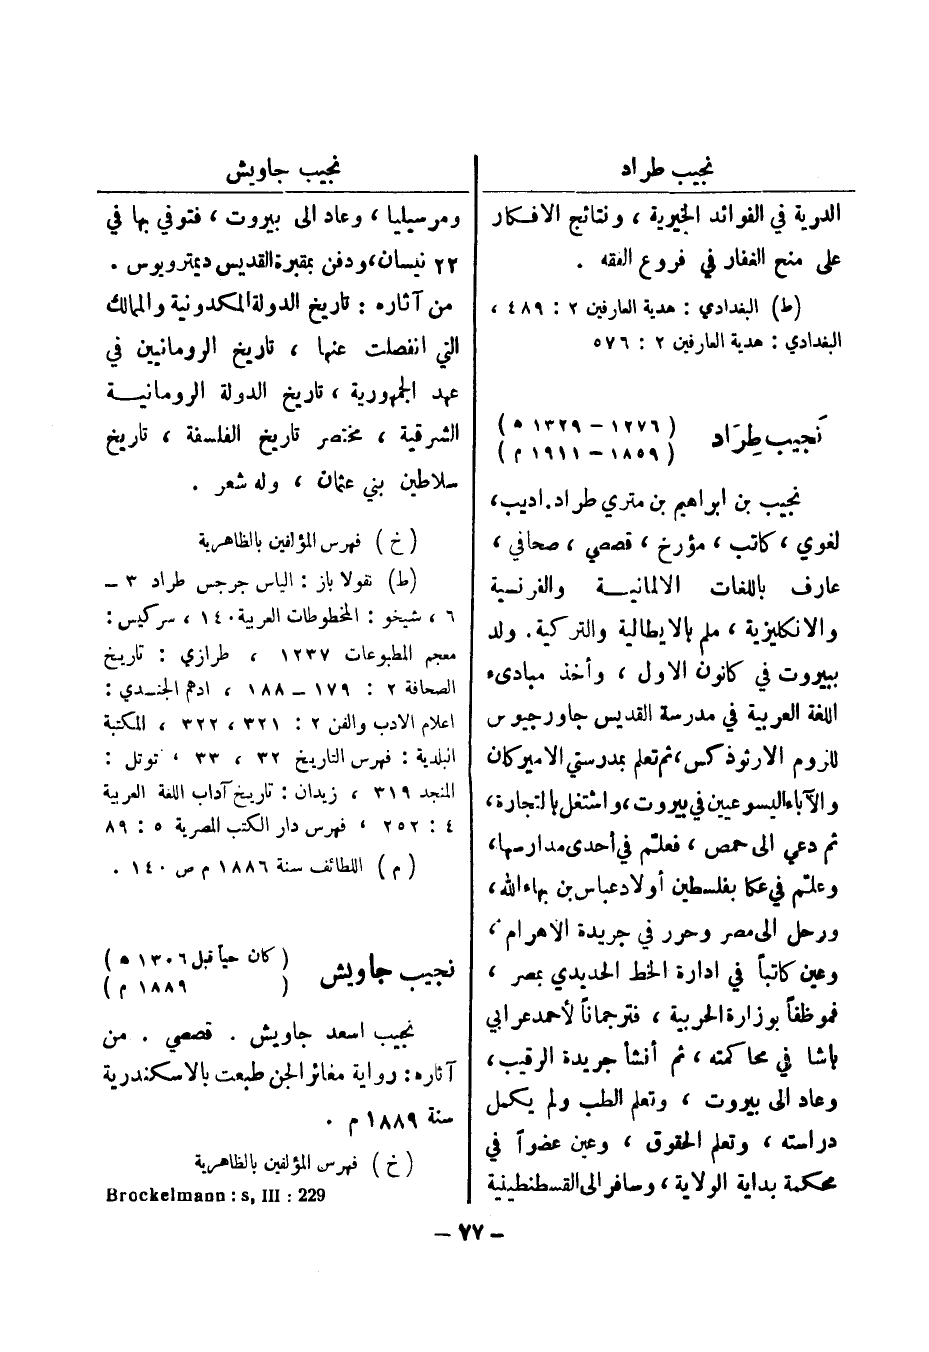 نجيب طراد
الدرية في الفوائد الخيرية ، ونتائج الافكار
على منح الغفار في فروع الفقه .
(ط) البغدادي : هدية العارفين ٢ : ٤٨٩ ،
البغدادي : هدية العارفين ٢ : ٥٧٦
نَجيب طِرَاد
( ١٢٧٦ – ١٣٢٩ ه )
( ١٨٥٩ – ١٩١١ م )
نجيب بن ابراهيم بن متري طراد. اديب،
لغوي ، كاتب ، مؤرخ ، قصصي ، صحافي ،
عارف باللغات الالمانيـــة والفرنسية
والانكليزية ، ملم بالايطالية والتركية . ولد
ببيروت في كانون الاول ، وأخذ مبادىء
اللغة العربية في مدرسة القديس جاورجيوس
للروم الارثوذكس، ثم تعلم بمدرستي الاميركان
والآباء اليسوعيين في بيروت، واشتغل بالتجارة،
ثم دعي الى حمص ، فعلّم في أحدى مدارسها،
وعلّم في عكا بفلسطين أولاد عباس بن بهاء الله،
ورحل الى مصر وحرر في جريدة الاهرام ،
وعين كاتباً في ادارة الخط الحديدي بمصر ،
فموظفاً بوزارة الحربية ، فترجماناً لأحمد عرابي
باشا في محاكمته ، ثم أنشأ جريدة الرقيب،
وعاد الى بيروت ، وتعلم الطب ولم يكمل
دراسته ، وتعلم الحقوق ، وعين عضواً في
محكمة بداية الولاية ، وسافر الى القسطنطينية
نجيب جاويش
ومرسيليا ، وعاد الى بيروت ، فتوفي بها في
٢٢ نيسان، ودفن بمقبرة القديس ديمتريوس .
من آثاره : تاريخ الدولة المكدونية والممالك
التي انفصلت عنها ، تاريخ الرومانيين في
عهد الجمهورية ، تاريخ الدولة الرومانيـــة
الشرقية ، مختصر تاريخ الفلسفة ، تاريخ
سلاطين بني عثمان ، وله شعر .
(خ) فهرس المؤلفين بالظاهرية
(ط) نقولا باز : الياس جرجس طراد ٣ –
٦ ، شيخو : المخطوطات العربية ١٤٠ ، سركيس :
معجم المطبوعات ١٢٣٧ ، طرازي : تاريخ
الصحافة ٢ : ١٧٩ – ١٨٨ ، ادهم الجنـدي :
اعلام الادب والفن ٢ : ٣٢١ ، ٣٢٢ ، المكتبة
البلدية : فهرس التاريخ ٣٢ ، ٣٣ ، توتل :
المنجد ٣١٩ ، زيدان : تاريخ آداب اللغة العربية
٤ : ٢٥٢ ، فهرس دار الكتب المصرية ٥ : ٨٩
(م) اللطائف سنة ١٨٨٦ م ص ١٤٠ .
نجيب جاويش
( كان حياً قبل ١٣٠٦ ه )
( ١٨٨٩ م )
نجيب اسعد جاويش . قصصي . من
آثاره : رواية مغائر الجن طبعت بالاسكندرية
سنة ١٨٨٩ م .
(خ) فهرس المؤلفين بالظاهرية
Brockelmann : s, III : 229
– ٧٧ –